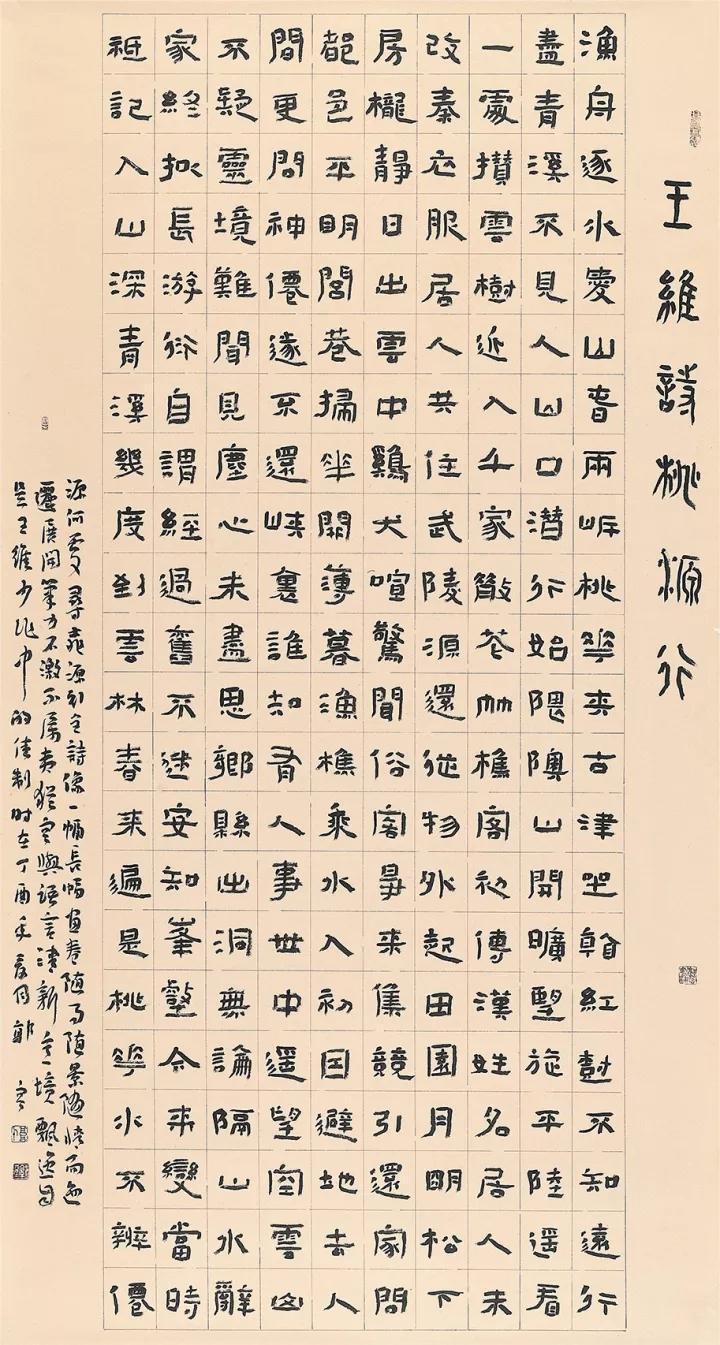 王維詩桃源行
漁舟逐水愛山春兩岸桃華夾古津坐看紅樹不知遠行
盡青溪不見人山口潛行始隈隩山開曠望旋平陸遙看
一處攢雲樹近入千家散花竹樵客初傳漢姓名居人未
改秦衣服居人共住武陵源還從物外起田園月明松下
房櫳靜日出雲中鷄犬喧驚聞俗客爭来集競引還家問
都邑平明閭巷掃華開薄暮漁樵乘水入初因避地去人
間更問神僊遂不還峽裏誰知有人事世中遥望空雲山
不疑靈境難聞見塵心未盡思鄉縣出洞無論隔山水辭
家終擬長游衍自謂經過舊不迷安知峯壑今来變當時
祗記入山深青溪幾度到雲林春来遍是桃華水不辨僊
源何處尋 桃源行全詩像一幅長幅畫卷随步随景随情而迤
邐展開筆力不激不厲夷猶容與語言清新意境飄逸自
是王維少作中的佳制 时在丁酉年